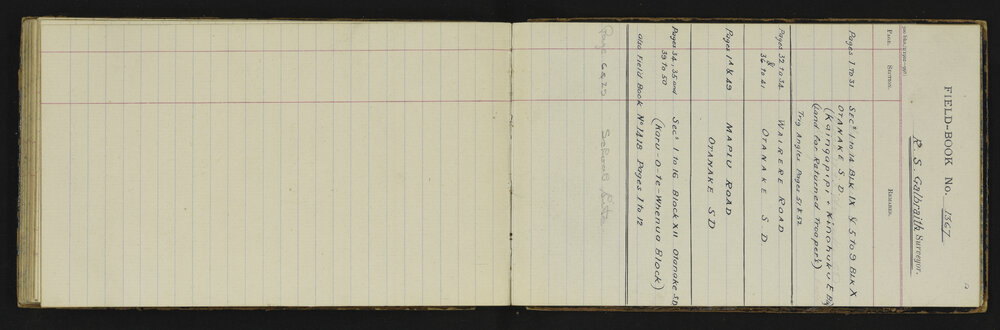 FIELD-BOOK No. 1367
R. S. Galbraith Surveyor.
PAGE. SECTION. REMARKS.
Pages 1 to 31 Secs 1 to 14 BLK IX & 5 to 9 BLK X
OTANAKE S.D.
(Kaingapipi & Kinohuku E
(Land for Returned Troopers)
Trig Angles Pages 51 & 52
Pages 32 to 34 WAIRERE ROAD
& 36 to 41 OTANAKE S.D
Pages 1A & 49 MAPIU ROAD
OTANAKE SD
Pages 34, 35 and Secs 1 to 16 Block XII Otanake S.D
39 to 50 (Karu-o-te-Whenua Block)
also Field Book No 1418 Pages 1 to 12
Page School Site